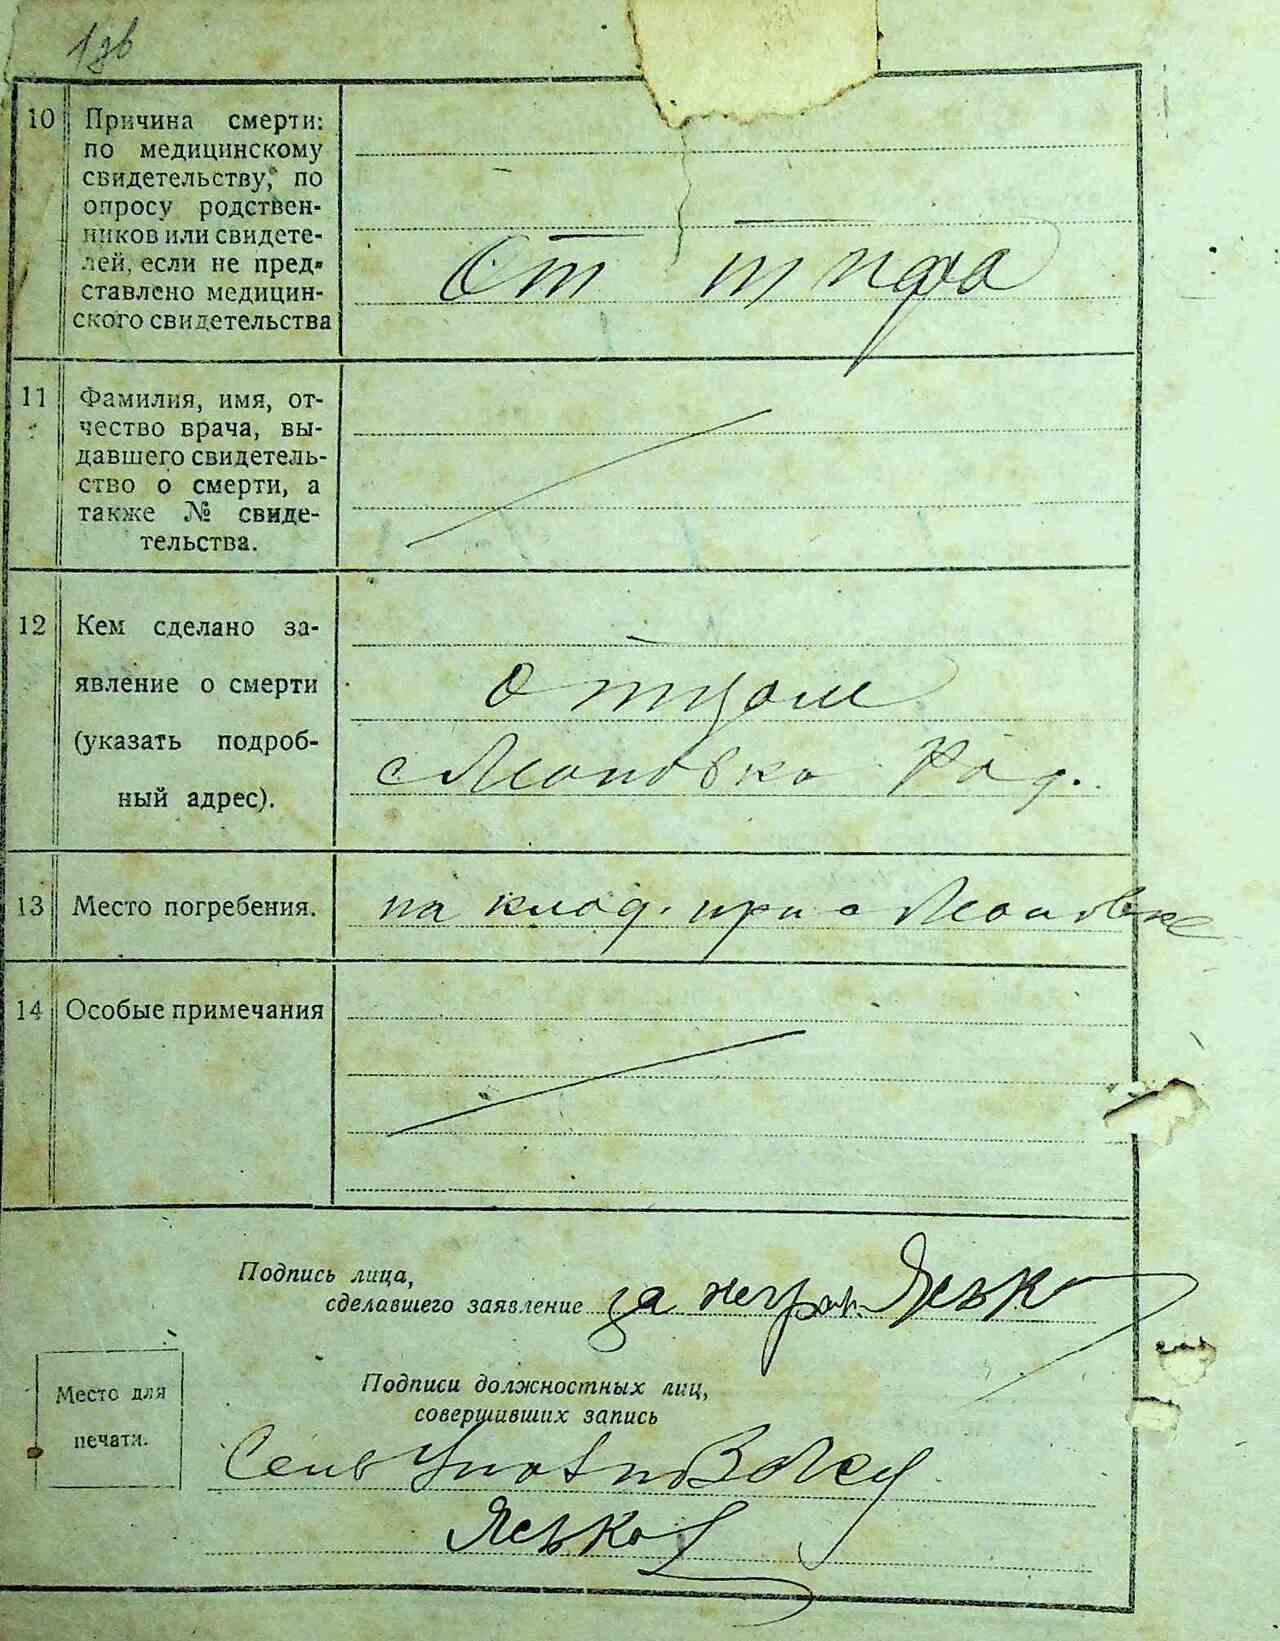 10 Причина смерти:
по медицинскому
свидетельству, по
опросу родствен-
ников или свидете-
лей, если не пред-
ставлено медицин-
ского свидетельства
От тифа
11 Фамилия, имя, от-
чество врача, вы-
давшего свидетель-
ство о смерти, а
также № свиде-
тельства.
12 Кем сделано за-
явление о смерти
(указать подроб-
ный адрес).
отцом
с
13 Место погребения.
на клад. при с
14 Особые примечания
Подпись лица,
сделавшего заявление за неграм. Яськов
Подписи должностных лиц,
совершивших запись
Место для
печати.
Яськов